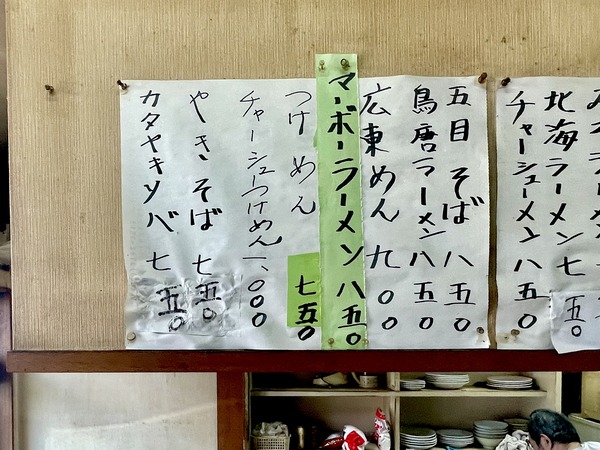 チャーシューメン 八五〇
北海ラーメン 七五〇
五目そば 八五〇
鳥唐ラーメン 八五〇
広東めん 九〇〇
マーボーラーメン 八五〇
つけめん 七五〇
チャーシュつけめん 一、〇〇〇
やきそば 七五〇
カタヤキソバ 七五〇